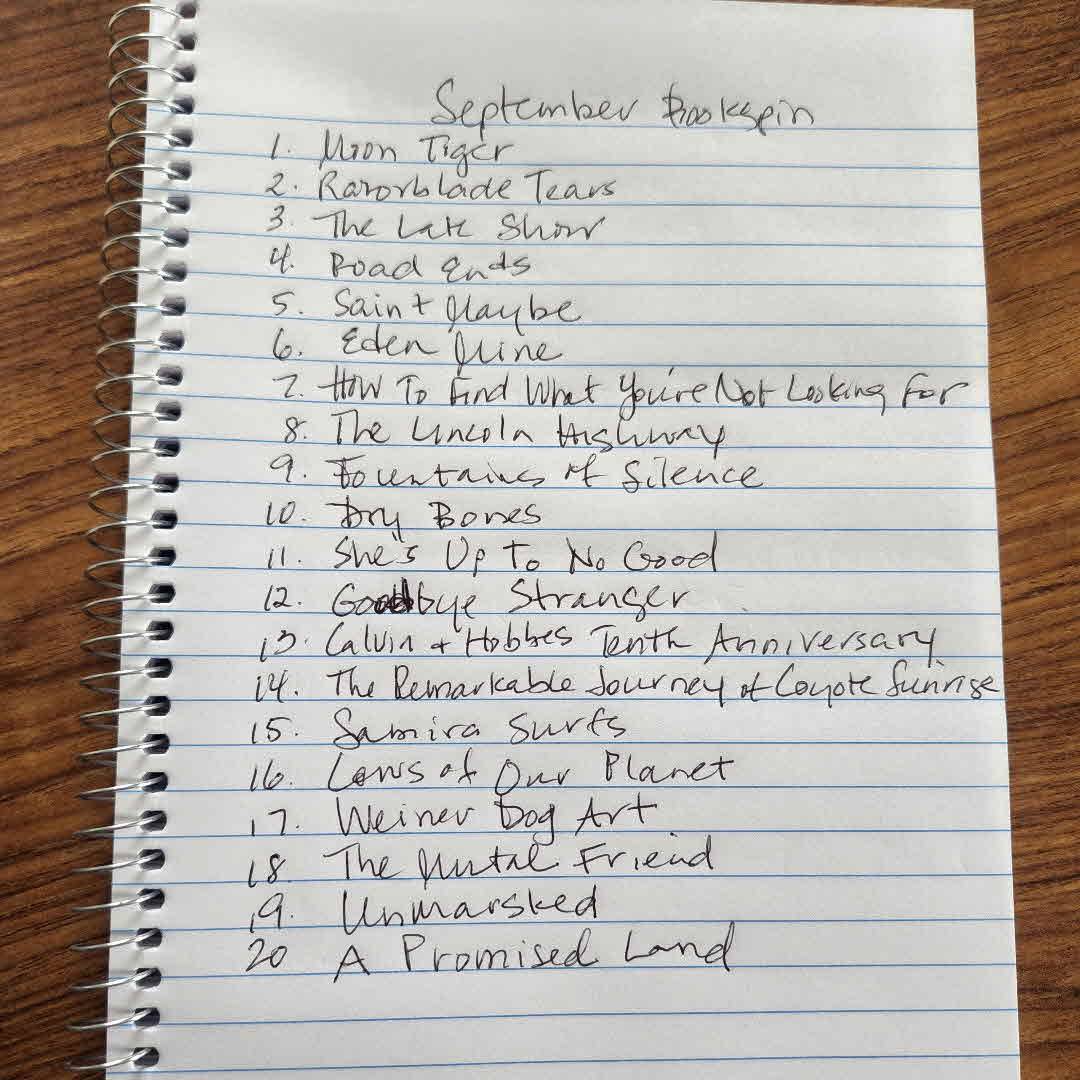 September Bookspin
1. Moon Tiger
2. Razorblade Tears
3. The Late Show
4. Road Ends
5. Saint Maybe
6. Eden Mine
7. How To Find What You're Not Looking For
8. The Lincoln Highway
9. Fountains of Silence
10. Dry Bones
11. She's Up To No Good
12. Goodbye Stranger
13. Calvin + Hobbes Tenth Anniversary
14. The Remarkable Journey of Coyote Sunrise
15. Samira Surfs
16. Laws of Our Planet
17. Weiner Dog Art
18 The Mutal Friend
19. Unmarsked
20 A Promised Land